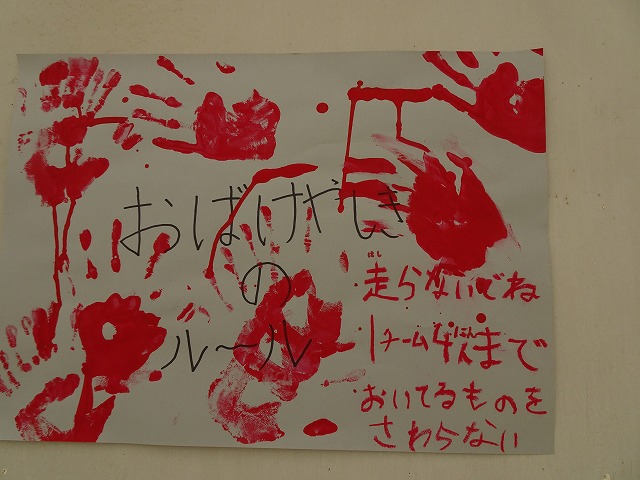 おばけやしき
の
ルール
走らないでね
1チーム4人まで
おいてるものを
さわらない